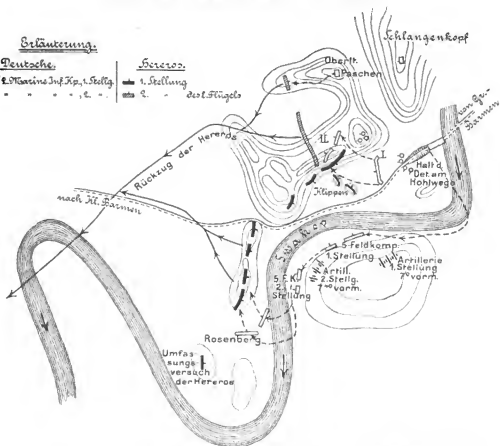 Erläuterung.
Deutsche.
2. Marine Inf. Kp., 1. Stellg.
" " " " , 2. "
Hereros.
1. Stellung
2. " des l. Flügels
Schlangenkopf
Oberlt.
Paschen
von Gr.-
Barmen
Rückzug der Hereros
II
I
Klippen
Halt d.
Det. am
Hohlwege
nach Kl. Barmen
Swakop
5. Feldkomp.
1. Stellung
Artillerie
1. Stellung
7⁰⁰ vorm.
Artill.
2. Stellg.
7⁴⁰ vorm.
5. F. K.
2.
Stellung
Rosenberg
Umfas-
sungs-
versuch
der Hereros